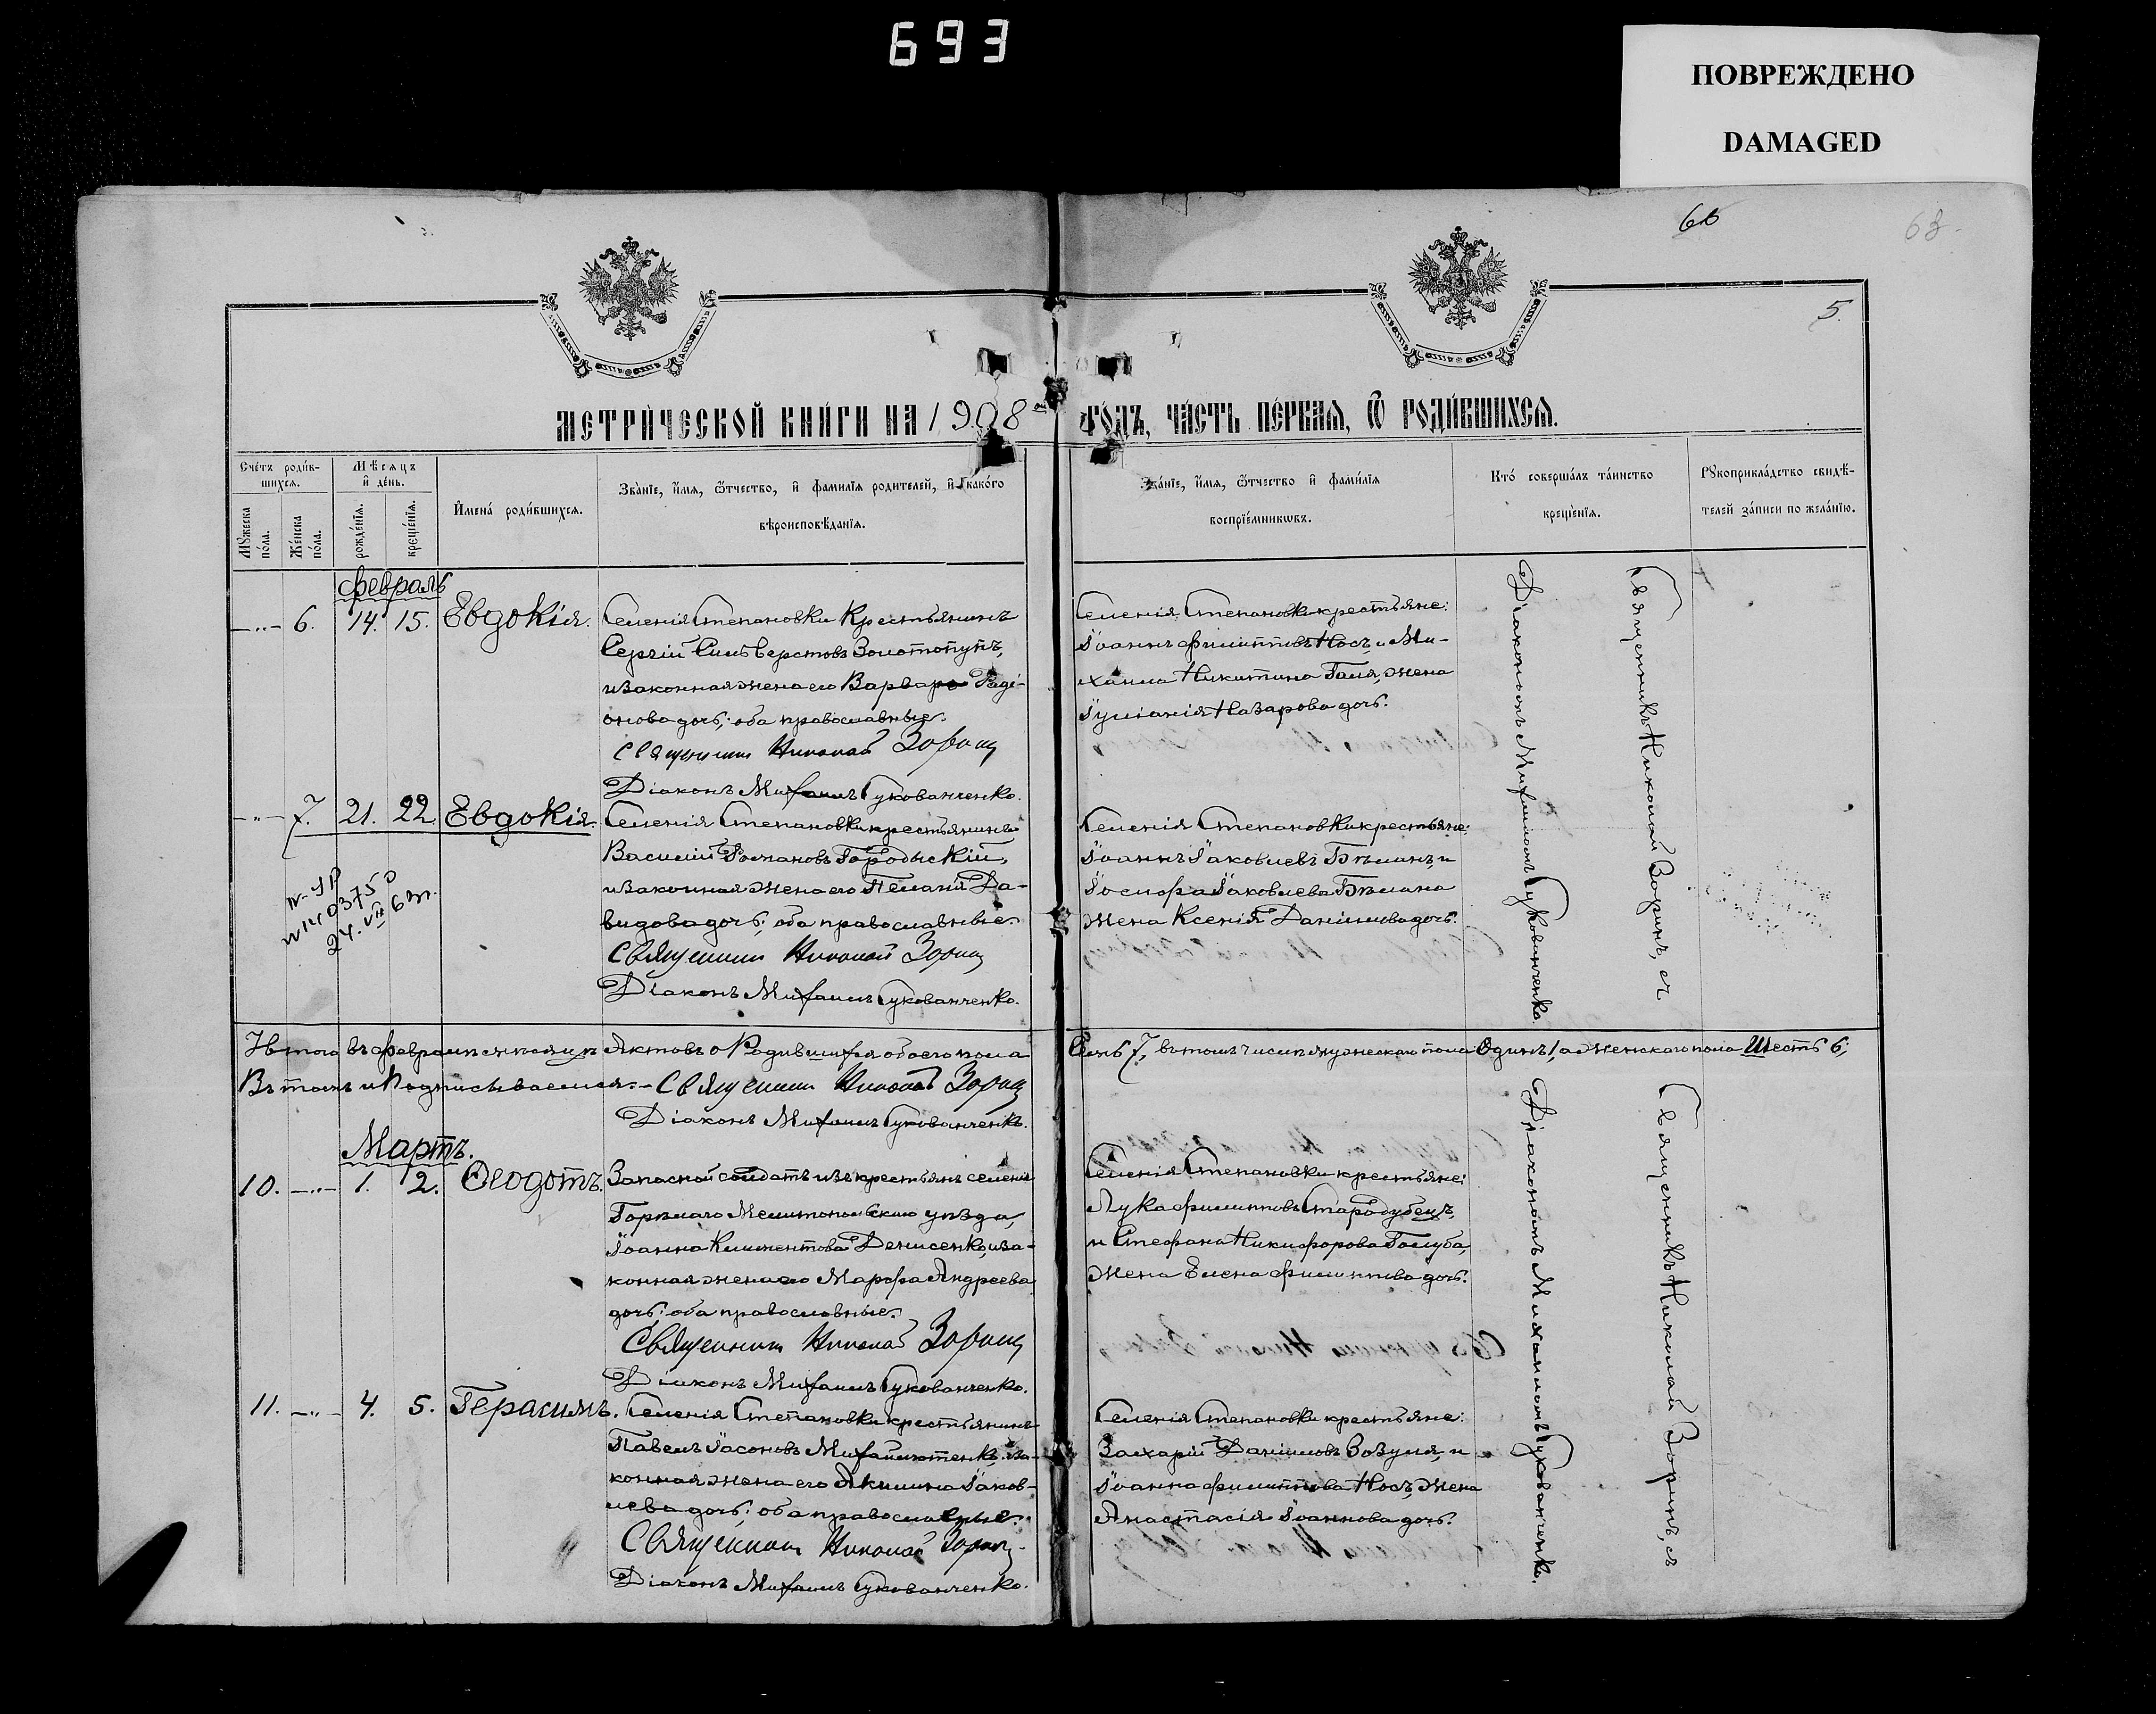 693
ПОВРЕЖДЕНО
DAMAGED
63
5.
МЕТРИ́ЧЕСКОЙ КНИ́ГИ НА 1908 ой
ГО́ДЪ, ЧА́СТЬ ПЕ́РВАѦ, Ѿ РОДИ́ВШИХСѦ.
Сче́тъ роди́в-
шихсѧ.
Мꙋ́жеска по́ла.
Же́нска по́ла.
Мѣ́сѧцъ
и҆ де́нь.
рожде́нїѧ.
креще́нїѧ.
И҆мена́ роди́вшихсѧ.
Зва́нїе, и҆́мѧ, ѻ҆́тчество, и҆ фами́лїѧ роди́телей, и҆ како́гѡ
вѣроисповѣ́данїѧ.
Зва́нїе, и҆́мѧ, ѻ҆́тчество и҆ фами́лїѧ
воспрїе́мникѡвъ.
Кто́ соверша́лъ та́инство
креще́нїѧ.
Рꙋкоприкла́дство свидѣ́-
телей за́писи по жела́нїю.
Февраль
—"— 6. 14. 15. Евдокія.
Селенія Степановки Крестьянинъ
Сергій Сильверстовъ Золотопупъ,
и законная жена его Варвара Роді-
онова дочь; оба православные.
Священникъ Николай Зоринъ
Діаконъ Михаилъ Гукованченко.
Селенія Степановки крестьяне:
Іоаннъ Филипповъ Носъ, и Ми-
хаила Никитина Галя, жена
Іуліанія Назарова дочь.
Діакономъ Михаиломъ Гукованченко.
Священникъ Николай Зоринъ, съ
—"— 7. 21. 22. Евдокія.
Селенія Степановки крестьянинъ
Василій Романовъ Городыскій,
и законная жена его Пелагія Да-
видова дочь; оба православные.
Священникъ Николай Зоринъ
Діаконъ Михаилъ Гукованченко.
Селенія Степановки крестьяне:
Іоаннъ Іаковлевъ Бѣлинъ, и
Іосифа Іаковлева Бѣлина
жена Ксенія Даніилова дочь.
N 1403750
24. VII 6
Итого въ февралѣ мѣсяцѣ Актовъ о Родившихся обоего пола Семь 7, въ томъ числѣ мужескаго пола Одинъ 1, а женскаго пола Шесть 6;
Въ томъ и Подписываемся. – Священникъ Николай Зоринъ
Діаконъ Михаилъ Гукованченко.
Мартъ.
10. —"— 1. 2. Ѳеодотъ.
Запасной солдатъ изъ крестьянъ селенія
Горѣлаго Мелитопольскаго уѣзда,
Іоанна Климентова Денисенко, и за-
конная жена его Марфа Андреева
дочь; оба православные.
Священникъ Николай Зоринъ
Діаконъ Михаилъ Гукованченко.
Селенія Степановки крестьяне:
Лука Филипповъ Стародубецъ,
и Стефана Никифорова Голуба,
жена Елена Филиппова дочь.
Діакономъ Михаиломъ Гукованченко.
Священникъ Николай Зоринъ, съ
11. —"— 4. 5. Герасимъ.
Селенія Степановки крестьянинъ
Павелъ Іасоновъ Михайлютенко, и за-
конная жена его Акилина Іаков-
лева дочь; оба православные.
Священникъ Николай Зоринъ
Діаконъ Михаилъ Гукованченко.
Селенія Степановки крестьяне:
Захарій Даніиловъ Зозуля, и
Іоанна Филиппова Носъ, жена
Анастасія Іоаннова дочь.